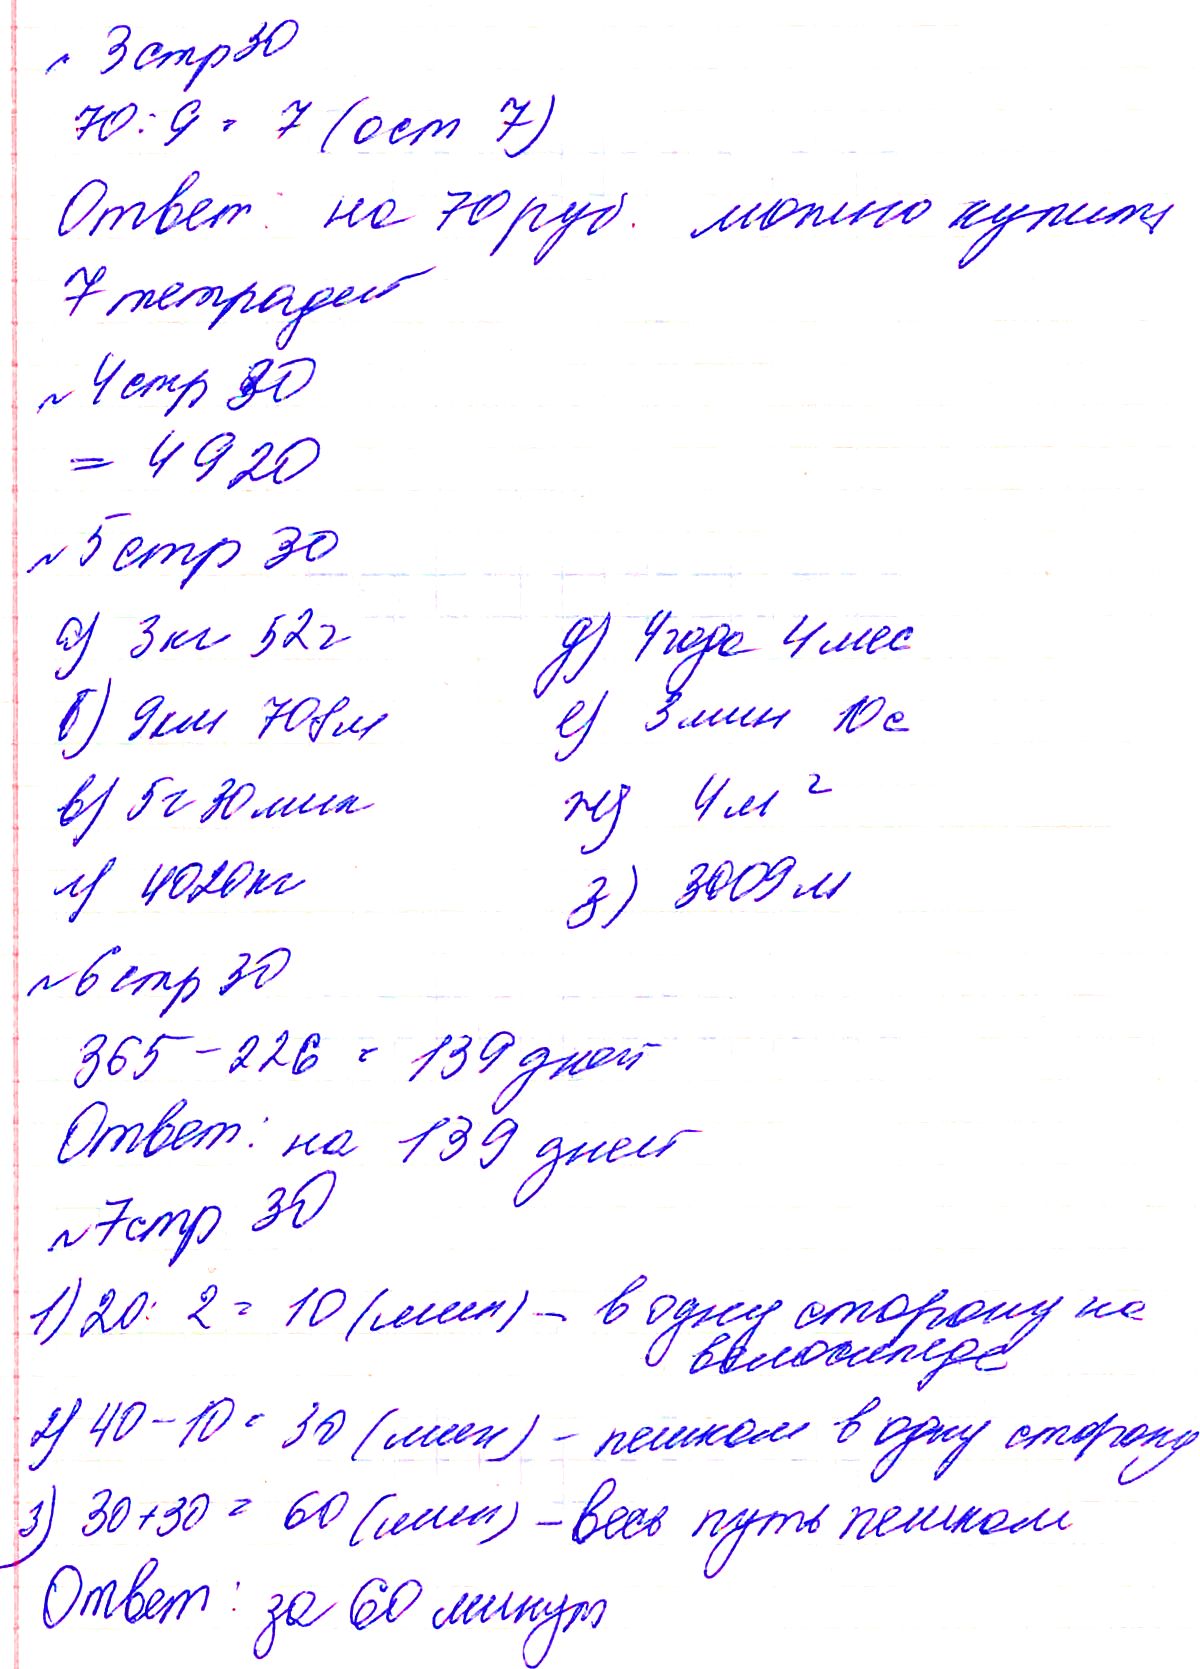 ~ 3 стр 30
70 : 9 = 7 (ост 7)
Ответ: на 70 руб. можно купить
7 тетрадей
~ 4 стр 30
= 4920
~ 5 стр 30
а) 3 кг 52 г
д) 4 года 4 мес
б) 9 км 708 м
е) 3 мин 10 с
в) 5 г 30 мин
ж) 4 м²
г) 4020 кг
з) 3009 м
~ 6 стр 30
365 - 226 = 139 дней
Ответ: на 139 дней
~ 7 стр 30
1) 20 : 2 = 10 (мин) - в одну сторону на
велосипеде
2) 40 - 10 = 30 (мин) - пешком в одну сторону
3) 30 + 30 = 60 (мин) - весь путь пешком
Ответ: за 60 минут